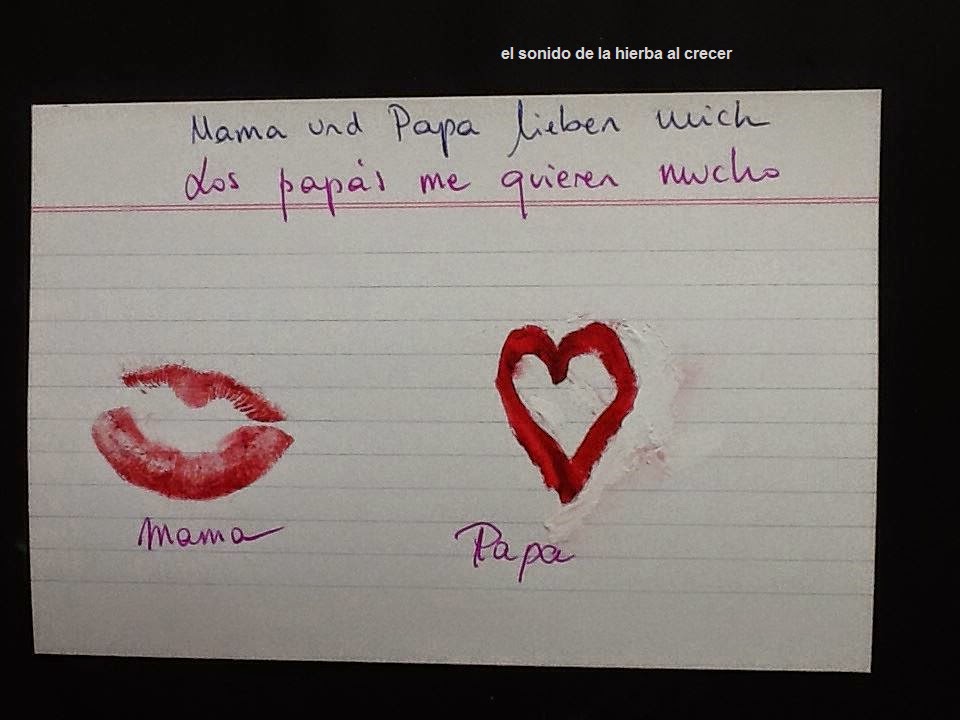 el sonido de la hierba al crecer
Mama und Papa lieben mich
Los papás me quieren mucho
Mama
Papa